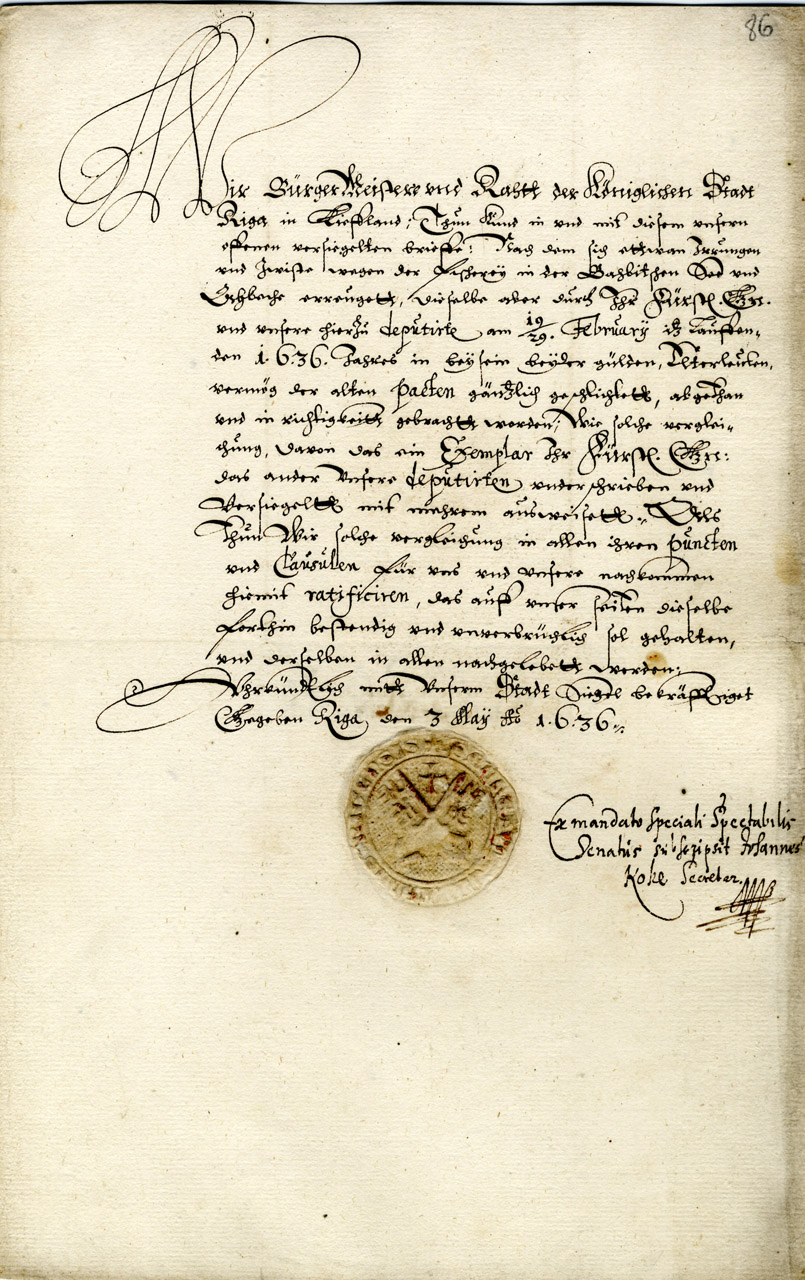 86
Wir BürgerMeistere vnd Rahtt der Königlichen Stadt
Riga in Lieffland, Thun kund in vnd mit diesem vnsern
offenen versiegelten brieffe: Nach dem sich ettwan Irrungen
vnd Zwiste wegen der Fischerey in der Babbitschen See vnd
erreugett, dieselbe aber durch Ihr Fürstl. Gn.
vnd vnsere hierzu deputirte am 19/29. February itz lauffen-
den 1.6.36. Jahres in beysein beyder gülden, Elterleuten,
vermög der alten pacten gäntzlich geschlichtett, abgethan
vnd in richtigkeitt gebracht worden; Wie solche verglei-
chung, davon das ein Exemplar Ihr Fürstl. Gn:
das ander Vnsere deputirten vnderschrieben vnd
Versiegeltt mit mehrem ausweisett. Als
Thun Wir solche vergleichung in allen ihren puncten
vnd Clausulen für vns vnd vnsere nachkommen
hiemit ratificiren, das auff vnser seiten dieselbe
forthin bestendig vnd vnverbrüchlich sol gehalten,
vnd derselben in allen nachgelebett werden;
Vhrkündtlich mitt Vnserm Stadt Siegel bekräfftiget
Gegeben Riga den 3 May Ao 1.6.36.
Ex mandato speciali Spectabilis
Senatus subscripsit Johannes
Koke Secretar.